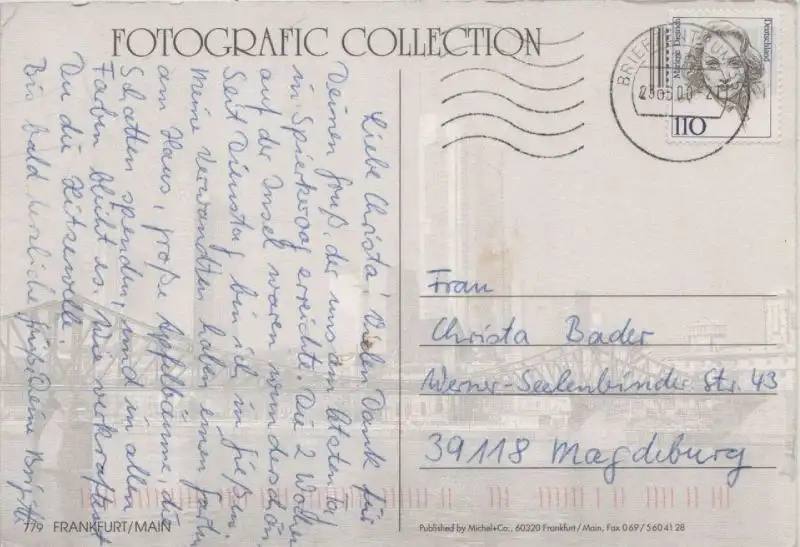 FOTOGRAFIC COLLECTION
Liebe Christa! Vielen Dank für
Deinen Gruß, der uns am letzten Tag
in Spiekeroog erreichte. Die 2 Wochen
auf der Insel waren wunderschön.
Seit Dienstag bin ich in Gießen.
Meine Verwandten haben einen Garten
am Haus, große Apfelbäume, die
Schatten spenden, und in allen
Farben blüht es. Wie verkraftest
Du die Hitzewelle.
Bis bald herzliche Grüße Deine Brigitte
779 FRANKFURT/MAIN
Deutschland
110
BRIEFZENTRUM
Frau
Christa Bader
Werner-Seelenbinder Str. 43
39118 Magdeburg
Published by Michel+Co., 60320 Frankfurt/Main, Fax 069/5604128